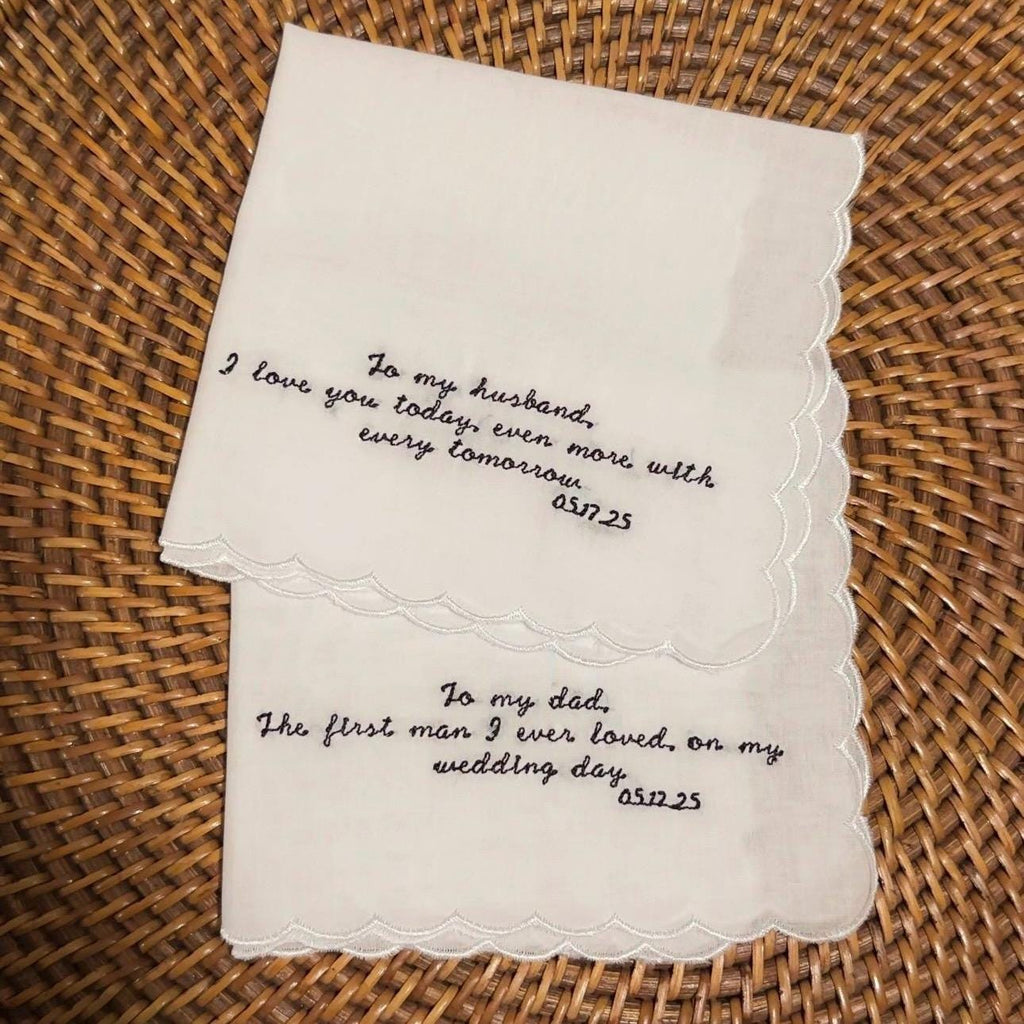 To my husband,
I love you today, even more with
every tomorrow
05.17.25
To my dad,
The first man I ever loved, on my
wedding day
05.17.25